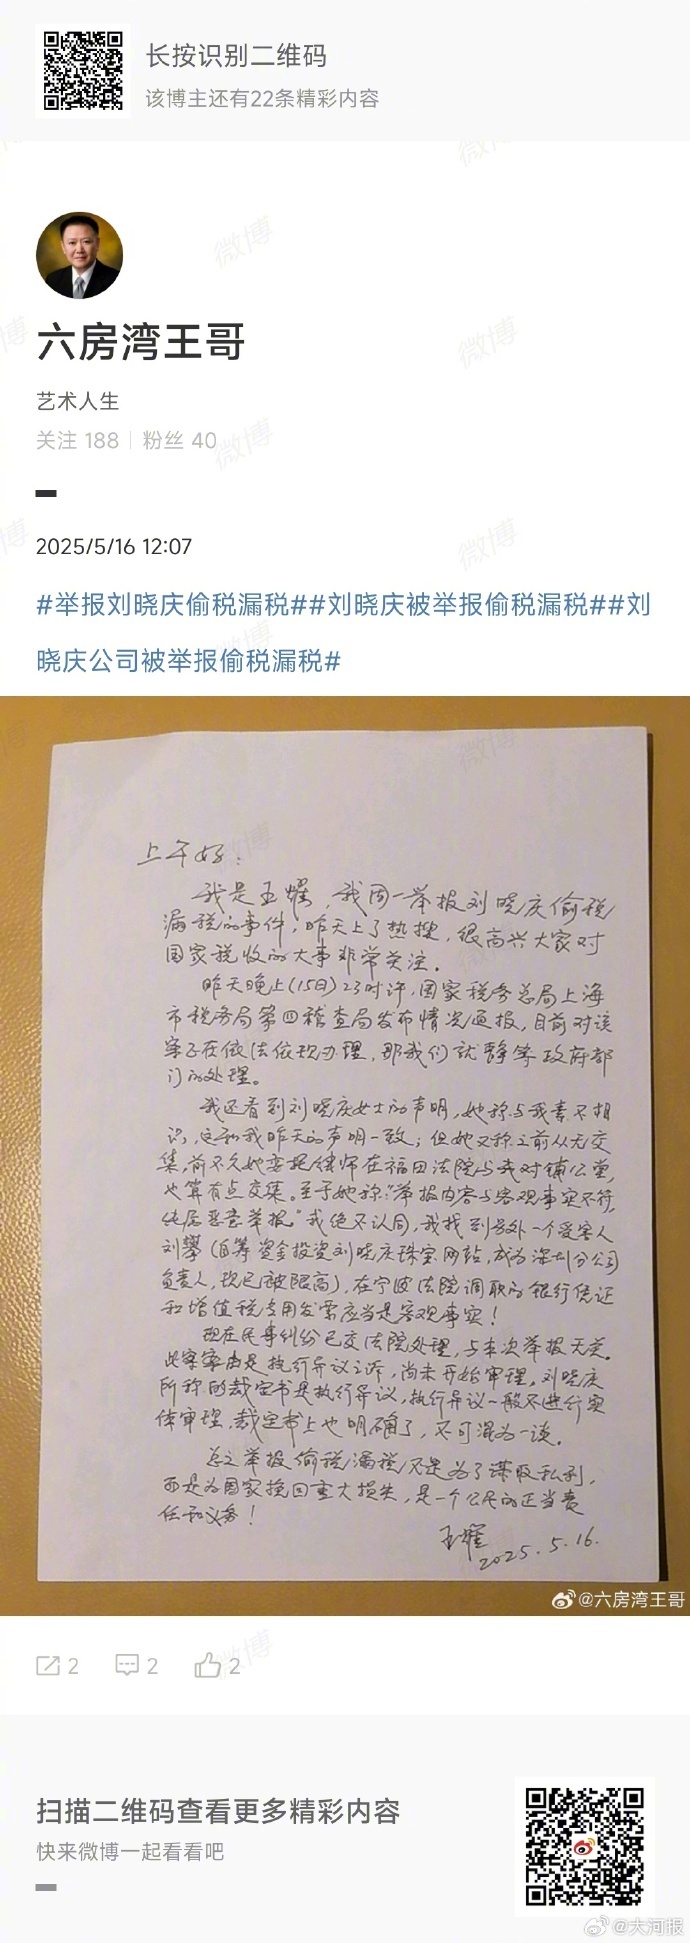 长按识别二维码
该博主还有22条精彩内容
六房湾王哥
艺术人生
关注 188 粉丝 40
2025/5/16 12:07
#举报刘晓庆偷税漏税##刘晓庆被举报偷税漏税##刘
晓庆公司被举报偷税漏税#
上午好:
我是王耀,我周一举报刘晓庆偷税
漏税的事件,昨天上了热搜,很高兴大家对
国家税收的大事非常关注。
昨天晚上(15日)23时许,国家税务总局上海
市税务局第四稽查局发布情况通报,目前对该
案子在依法依规办理,那我们就静等政府部
门的处理。
我还看到刘晓庆女士的声明,她称与我素不相
识,这和我昨天的声明一致;但她又称之前从无交
集,前不久她委托律师在福田法院与我对铺公堂,
也算有点交集。至于她称:"举报内容与客观事实不符,
纯属恶意举报。"我绝不认同,我找到另外一个受害人
刘攀(自筹资金投资刘晓庆珠宝网站,成为深圳分公司
负责人,现已被限高),在宁波法院调取的银行凭证
和增值税专用发票应当是客观事实!
现在民事纠纷已交法院处理,与本次举报无关。
此案案由是执行异议之诉,尚未开始审理。刘晓庆
所称的裁定书是执行异议,执行异议一般不进行实
体审理,裁定书上也明确了,不可混为一谈。
总之举报偷税漏税不是为了谋取私利,
而是为国家挽回重大损失,是一个公民的正当责
任和义务!
王耀
2025.5.16.
@六房湾王哥
2 2 2
扫描二维码查看更多精彩内容
快来微博一起看看吧
@大河报